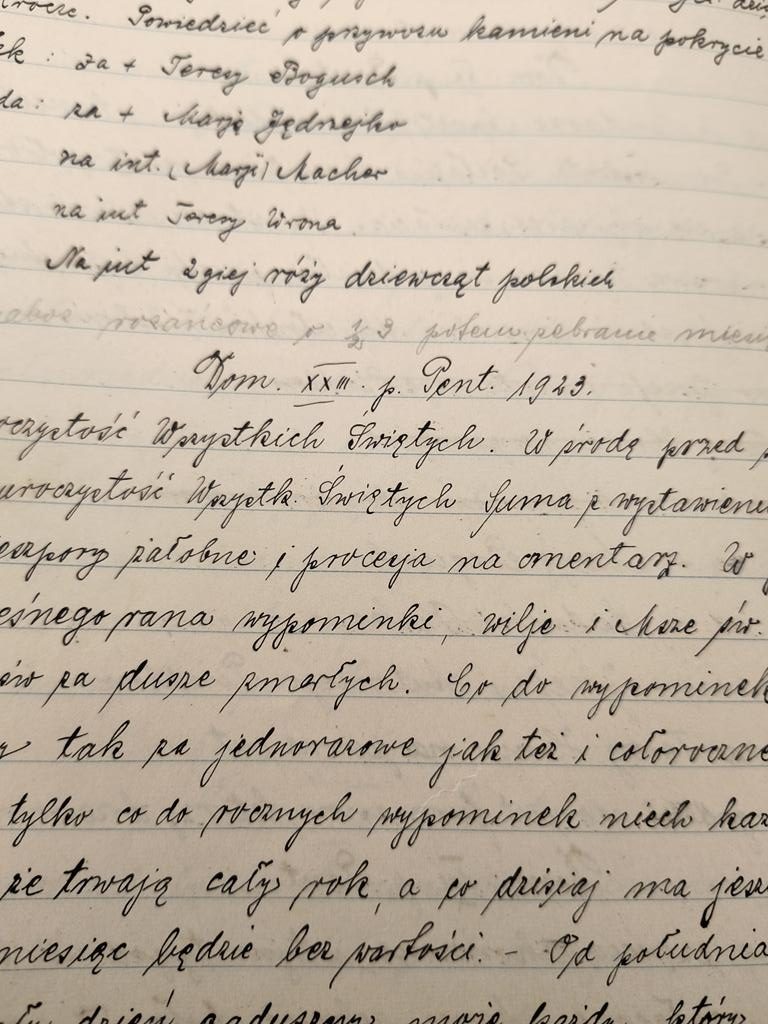 Powiedzieć o przywozu kamieni na pokrycie
ek : za + Teresy Bogusch
da : za + Marję Jędrzejko
na int. (Marji) Macher
na int Teresy Wrona
Na int 2giej róży dziewcząt polskich
rożańcowe o ½ 3 potem pebranie
Dom. XXIII. p. Pent. 1923.
oczystość Wszystkich Świętych. W środę przed
uroczystość Wszystk. Świętych Suma z wystawieni
eszpory żałobne i procesja na cmentarz. W
eśnego rana wypominki, wilje i Msze św.
św za dusze zmarłych. Co do wypominek
tak za jednorazowe jak też i całoroczne
tylko co do rocznych wypominek niech kaz
że trwają cały rok, a co dzisiaj ma jesz
miesiąc będzie bez wartości. – Od południa
dzień zaduszny może każdy, który